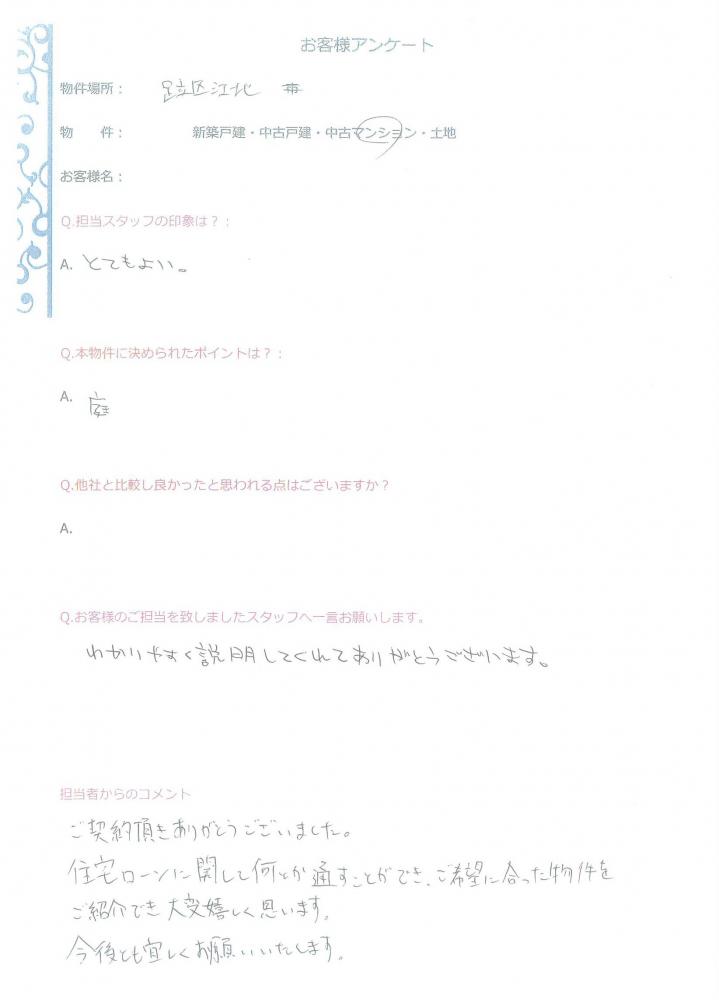 お客様アンケート
物件場所： 足立区江北
物 件： 新築戸建・中古戸建・中古マンション・土地
お客様名：
Q.担当スタッフの印象は？：
A. とてもよい。
Q.本物件に決められたポイントは？：
A. 庭
Q.他社と比較し良かったと思われる点はございますか？
A.
Q.お客様のご担当を致しましたスタッフへ一言お願いします。
わかりやすく説明してくれてありがとうございます。
担当者からのコメント
ご契約頂きありがとうございました。
住宅ローンに関して何とか通すことができ、ご希望に合った物件を
ご紹介でき大変嬉しく思います。
今後とも宜しくお願いいたします。